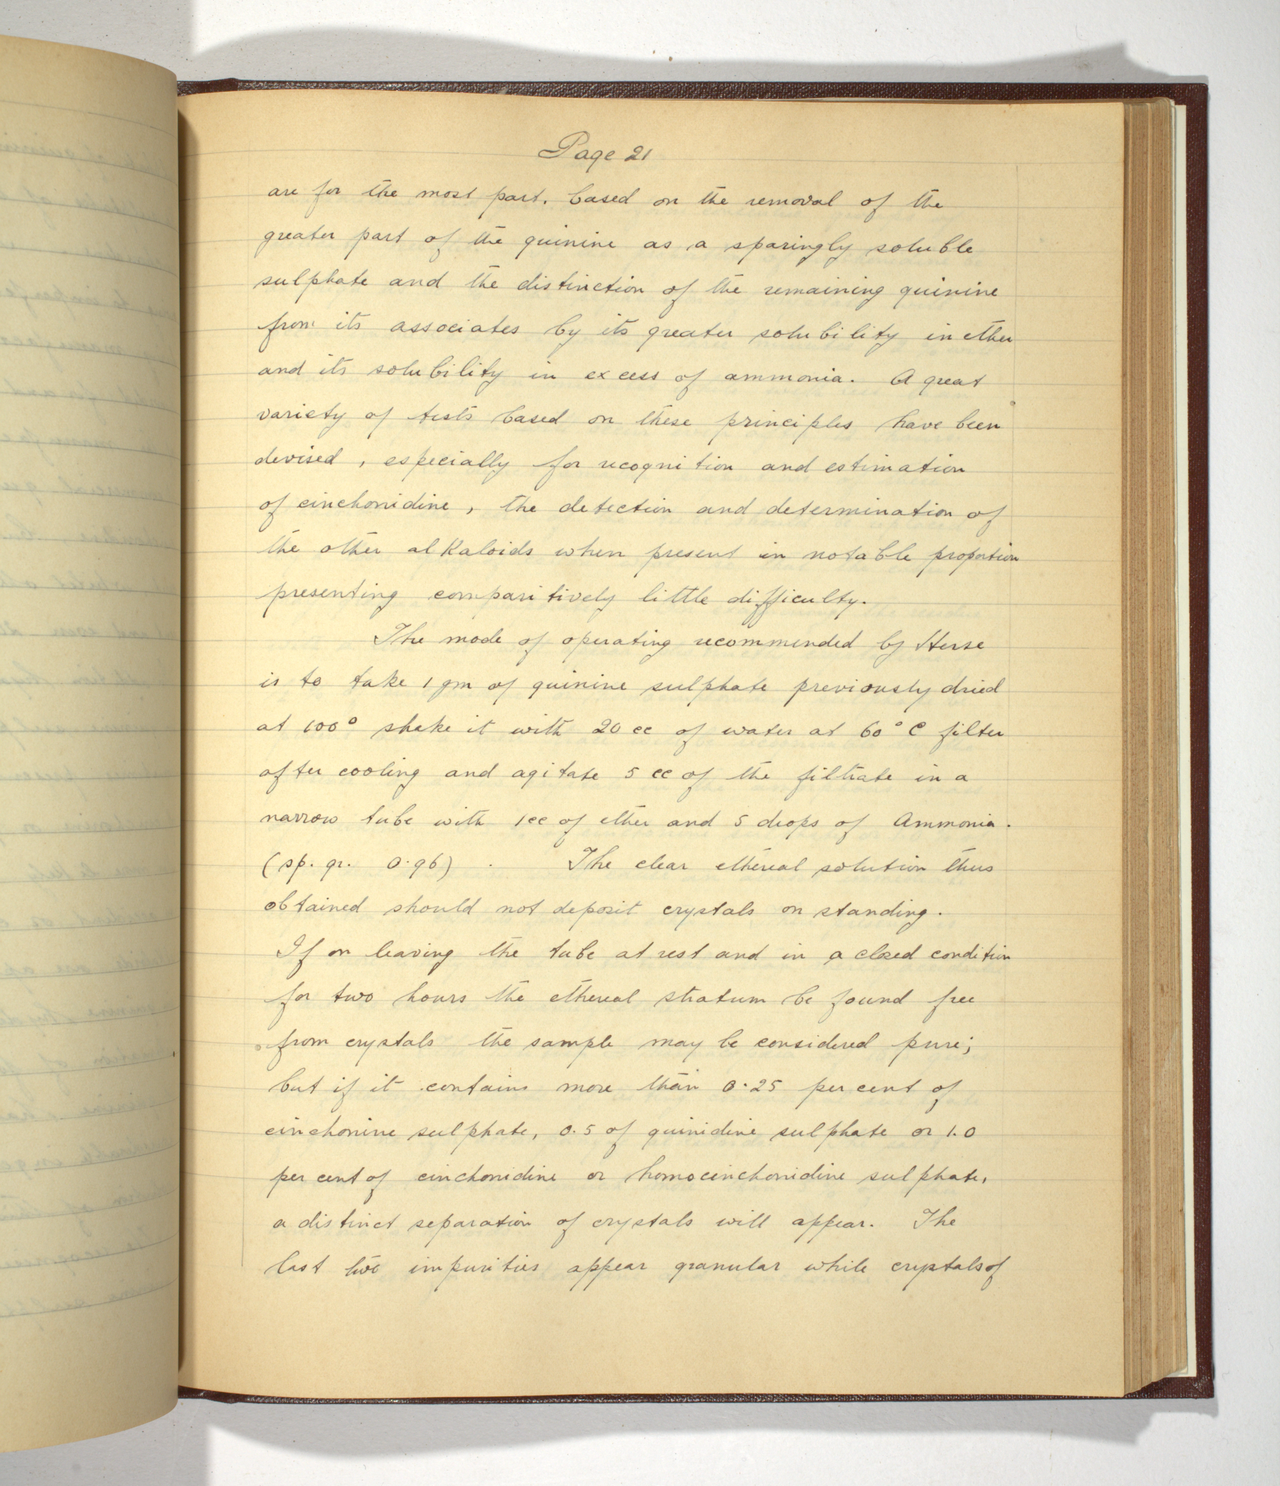 Page 21
are for the most part, based on the removal of the
greater part of the quinine as a sparingly soluble
sulphate and the distinction of the remaining quinine
from its associates by its greater solubility in ether
and its solubility in excess of ammonia. A great
variety of tests based on these principles have been
devised, especially for recognition and estimation
of cinchonidine, the detection and determination of
the other alkaloids when present in notable proportion
presenting comparitively little difficulty.
The mode of operating recommended by Herse
is to take 1 gm of quinine sulphate previously dried
at 100° shake it with 20 cc of water at 60° C filter
after cooling and agitate 5 cc of the filtrate in a
narrow tube with 1cc of ether and 5 drops of Ammonia.
(sp. gr. 0.96). The clear ethereal solution thus
obtained should not deposit crystals on standing.
If on leaving the tube at rest and in a closed condition
for two hours the ethereal stratum be found free
from crystals the sample may be considered pure;
but if it contains more than 0.25 per cent of
cinchonine sulphate, 0.5 of quinidine sulphate or 1.0
per cent of cinchonidine or homocinchonidine sulphate,
a distinct separation of crystals will appear. The
last two impurities appear granular while crystals of